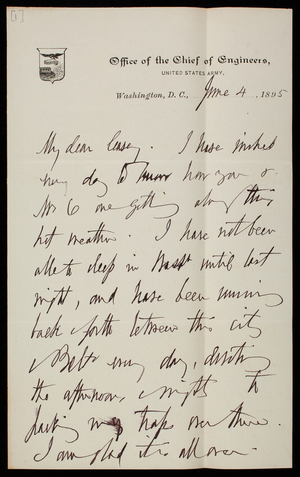 [1]
Office of the Chief of Engineers,
UNITED STATES ARMY.
Washington, D.C., June 4, 1895
My dear Casey. I have wished
every day to know how you &
Mrs C are getting along this
hot weather. I have not been
able to sleep in Washn until last
night, and have been running
back & forth between this city
& Balto every day, devoting
the afternoons & nights to
packing my traps over there.
I am glad it is all over.